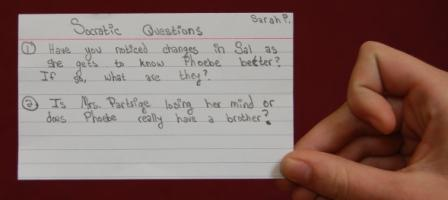 Sarah P.
Socratic Questions
① Have you noticed changes in Sal as
she gets to know Phoebe better?
If so, what are they?
② Is Mrs. Partrige losing her mind or
does Phoebe really have a brother?